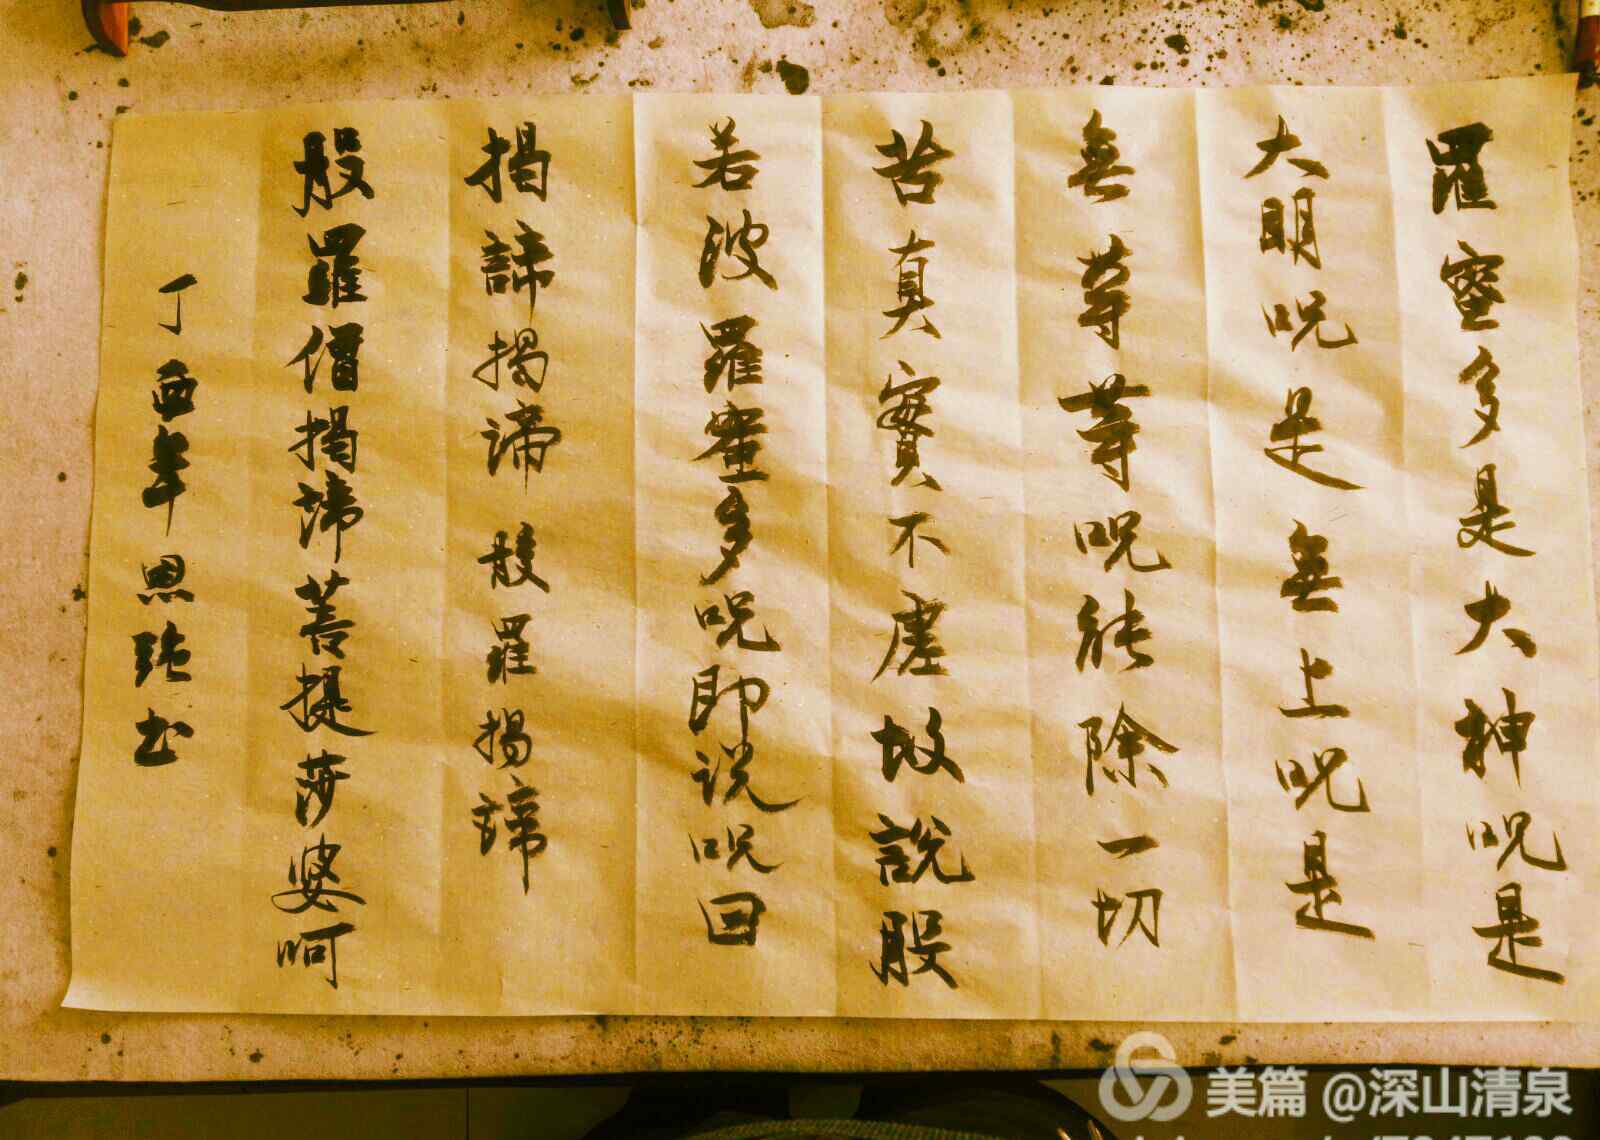 羅蜜多是大神呪是
大明呪是無上呪是
無等等呪能除一切
苦真實不虛故說般
若波羅蜜多呪即说呪曰
揭諦揭諦般羅揭諦
般羅僧揭諦菩提莎婆呵
丁酉年恩強书
美篇 @深山清泉